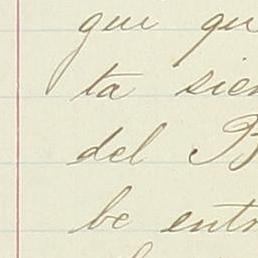 que qu
ta sien
del B
be entr